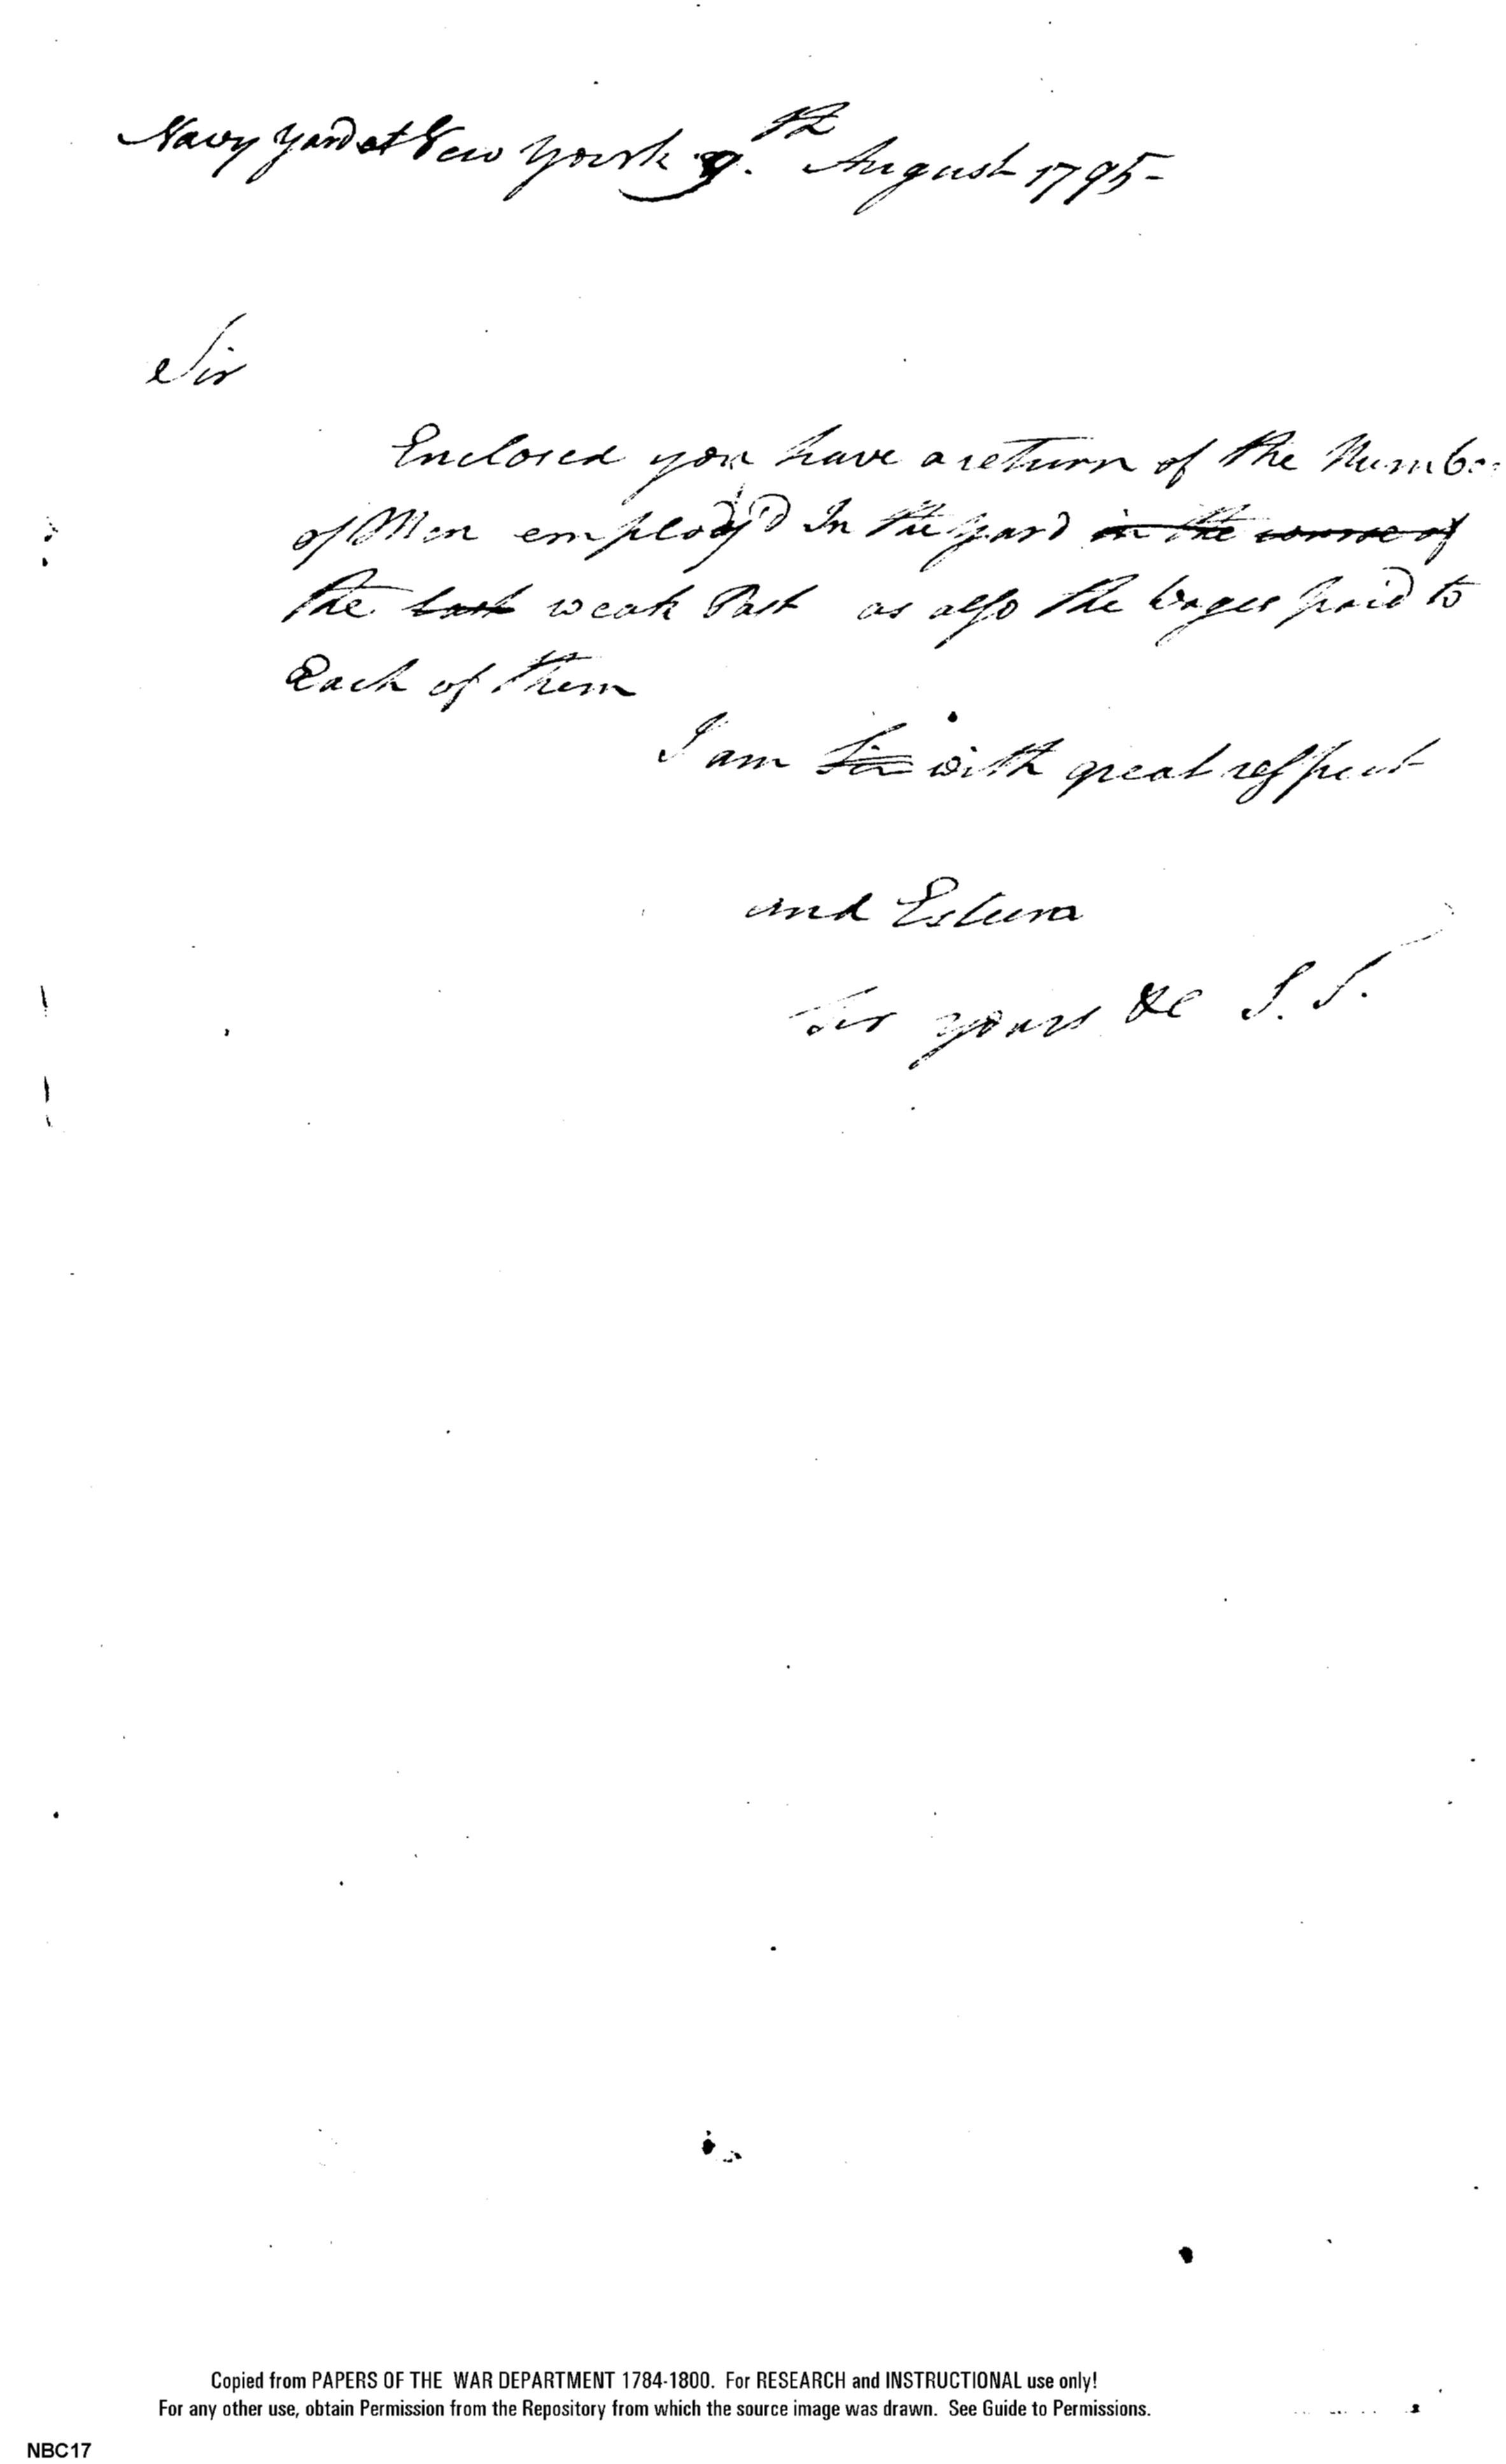 Navy Yard at New Yourk 9.th August 1795-
Sir
Enclosed you have a return of the Number
of Men employ'd In the yard in the course of
the last weak Past as also the wages paid to
Each of them
I am Sir with great respect
and Esteem
Sir yours &c J. T.
Copied from PAPERS OF THE WAR DEPARTMENT 1784-1800. For RESEARCH and INSTRUCTIONAL use only!
For any other use, obtain Permission from the Repository from which the source image was drawn. See Guide to Permissions.
NBC17